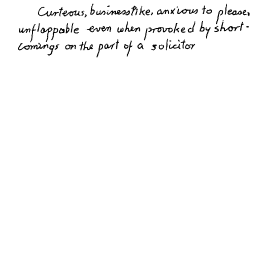 Curteous, businesslike, anxious to please,
unflappable even when provoked by short-
comings on the part of a solicitor